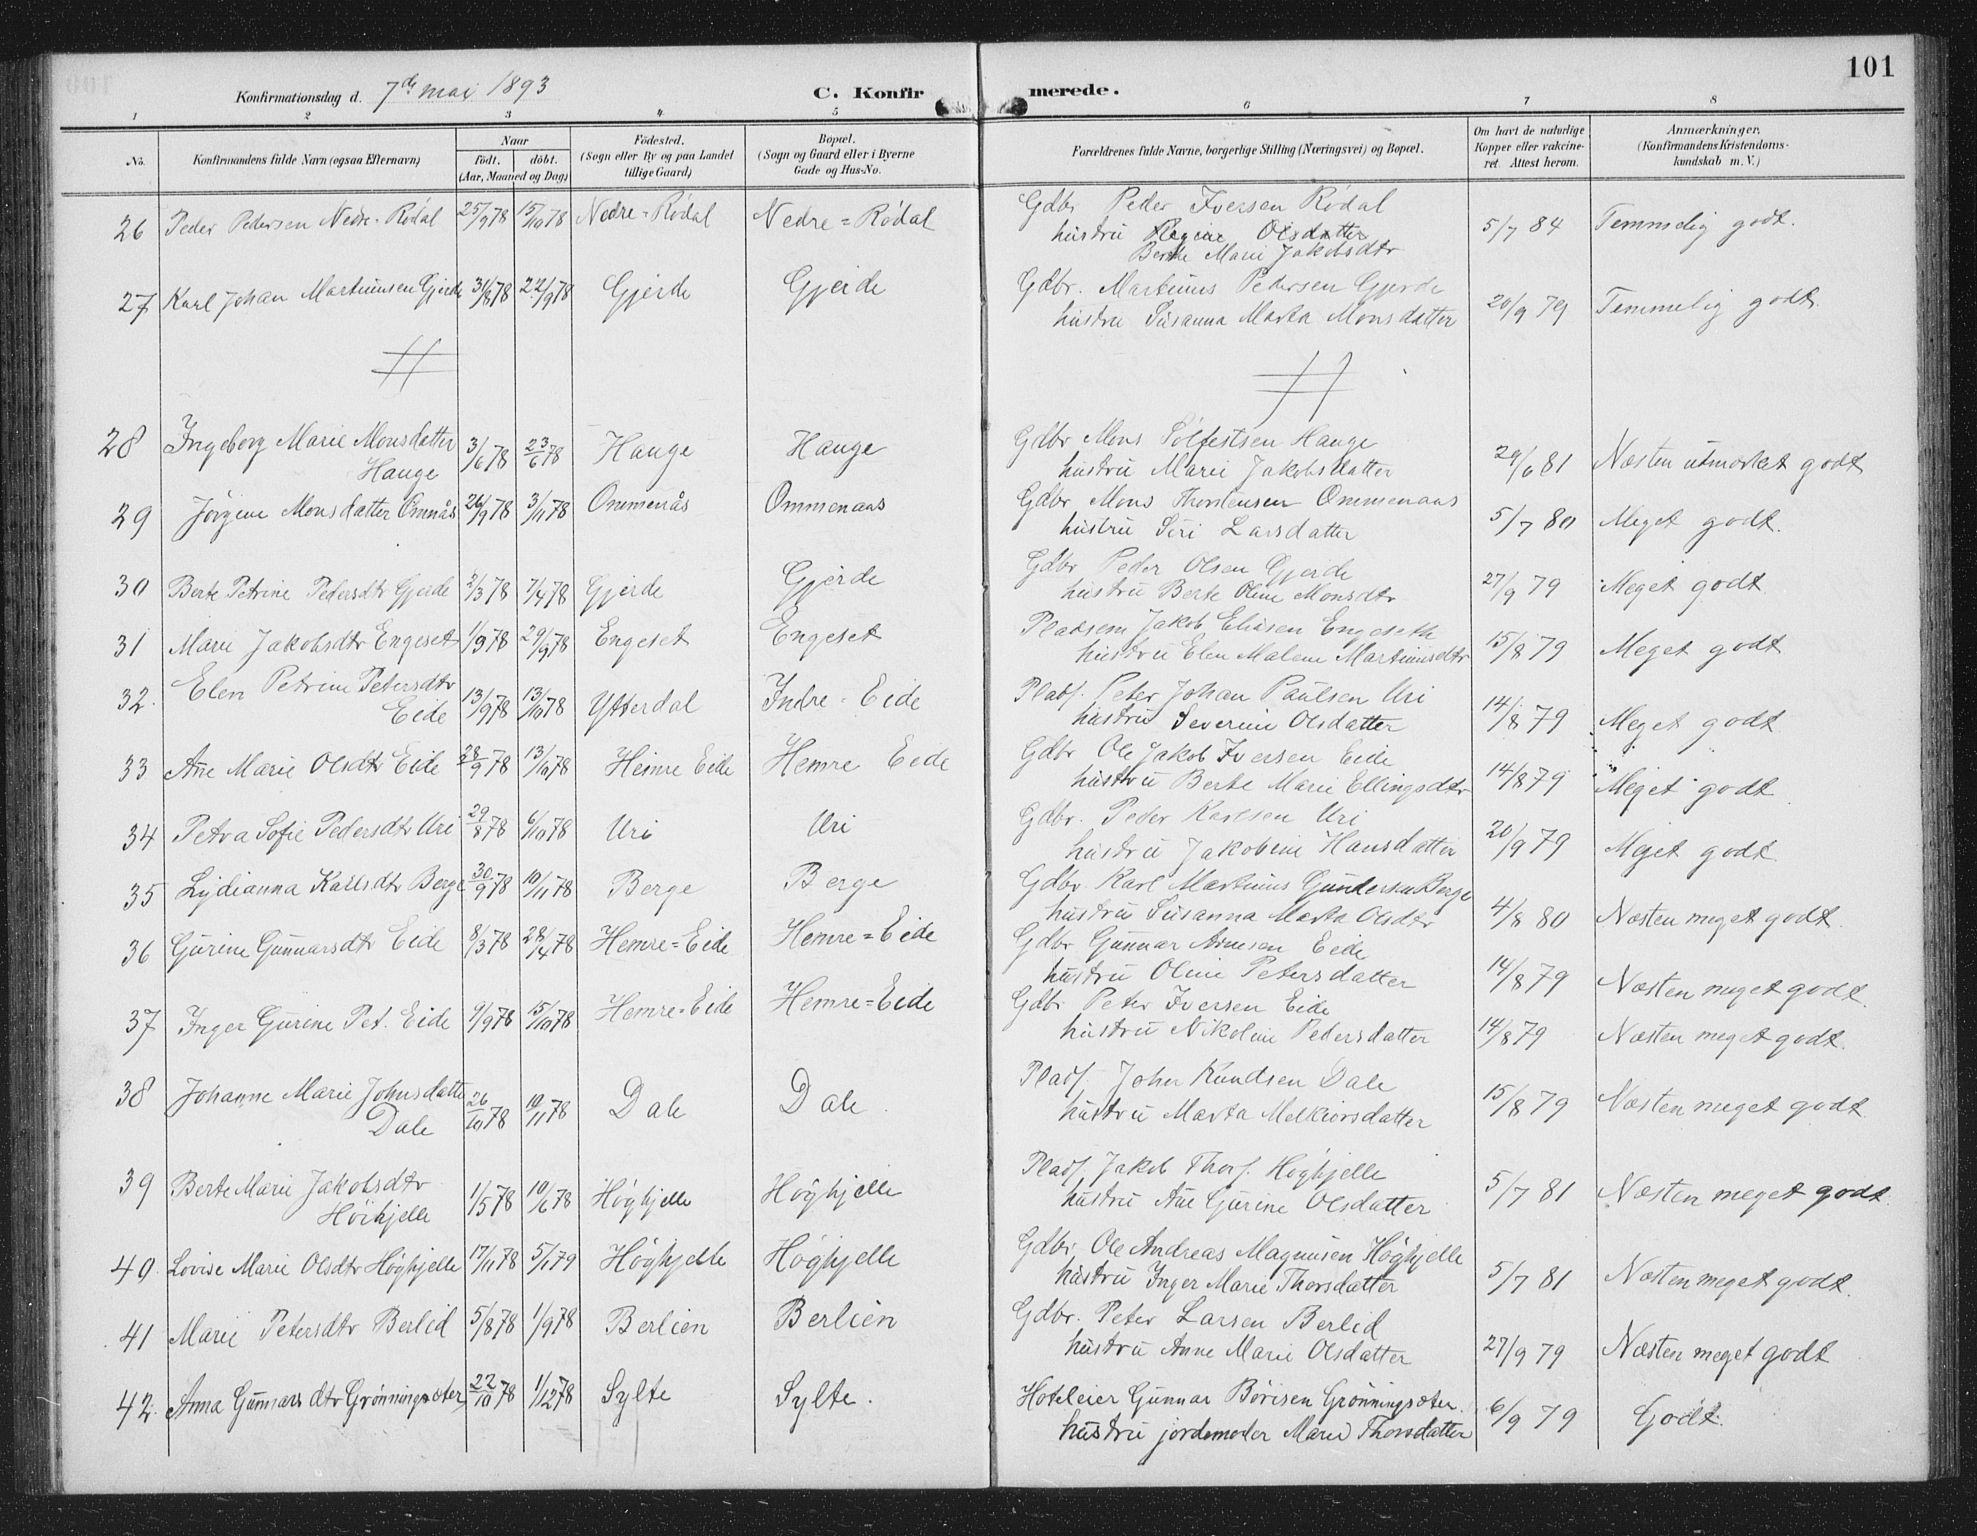 101
Konfirmationsdag d. 7de mai 1893
C. Konfirmerede.
1 2 3 4 5 6 7 8
No. Konfirmandens fulde Navn (ogsaa Efternavn) Naar födt. döbt. (Aar, Maaned og Dag) Födested. (Sogn eller By og paa Landet tillige Gaard) Bopæl. (Sogn og Gaard eller i Byerne Gade og Hus-No. Forældrenes fulde Navne, borgerlige Stilling (Næringsvei) og Bopæl. Om havt de naturlige Kopper eller vaccineret. Attest herom. Anmærkninger. (Konfirmandens Kristendomskundskab m. V.)
26 Peder Pedersen Nedre-Rødal 25/9 78 15/10 78 Nedre=Rødal Nedre=Rødal Gdbr Peder Iversen Rødal 5/7 84 Temmelig godt.
hustru Regine Olsdatter
Berthe Marie Jakobsdtr
27 Karl Johan Martinusen Gjerde 31/8 78 22/9 78 Gjerde Gjerde Gdbr. Martinus Pedersen Gjerde 20/9 79 Temmelig godt.
hustru Susanna Marta Monsdatter
28 Ingeborg Marie Monsdatter 3/6 78 23/6 78 Hauge Hauge Gdbr Mons Sølfestsen Hauge 29/6 81 Næsten utmerket godt
Hauge hustru Marie Jakobsdatter
29 Jørgine Monsdatter Omnås 26/9 78 3/11 78 Ommenås Ommenaas Gdbr Mons Thorstensen Ommenaas 5/7 80 Meget godt.
hustru Siri Larsdatter
30 Berte Petrine Pedersdtr Gjerde 2/3 78 7/4 78 Gjerde Gjerde Gdbr Peder Olsen Gjerde 27/9 79 Meget godt
hustru Berte Oline Monsdtr
31 Marie Jakobsdtr Engeset 1/9 78 29/9 78 Engeset Engeset Pladsem Jakob Eliasen Engeseth 15/8 79 Meget godt
hustru Elen Malene Martinusdtr
32. Elen Petrine Petersdtr 13/9 78 13/10 78 Ytterdal Indre=Eide Plads. Peter Johan Paulsen Uri 14/8 79 Meget godt
Eide hustru Severine Olsdatter
33 Ane Marie Olsdtr Eide 28/9 78 13/10 78 Hemre Eide Hemre Eide Gdbr Ole Jakob Iversen Eide 14/8 79 Meget godt
hustru Berte Marie Ellingsdtr
34 Petra Sofie Pedersdtr Uri 29/8 78 6/10 78 Uri Uri Gdbr. Peder Karlsen Uri 20/9 79 Meget godt
hustru Jakobine Hansdatter
35 Lydianna Karlsdtr Berge 30/9 78 10/11 78 Berge Berge Gdbr. Karl Martinus Gundersen Berge 4/8 80 Næsten meget godt.
hustru Susanna Marta Olsdtr
36 Gurine Gunnarsdtr Eide 8/3 78 28/4 78 Hemre=Eide Hemre=Eide Gdbr Gunnar Arnesen Eide 14/8 79 Næsten meget godt.
hustru Oline Petersdatter
37 Inger Gurine Pet. Eide 9/9 78 15/10 78 Hemre=Eide Hemre=Eide Gdbr Peter Iversen Eide 14/8 79 Næsten meget godt.
hustru Nikoline Pedersdatter
38 Johanne Marie Johnsdatter 26/10 78 10/11 78 Dale Dale Plads. John Knudsen Dale 15/8 79 Næsten meget godt
Dale hustru Marta Melkiorsdatter
39 Berte Marie Jakobsdtr 1/5 78 10/6 78 Høghjelle Høghjelle Plads. Jakob Thors. Høghjelle 5/7 81 Næsten meget godt.
Høihjelle hustru Ane Gurine Olsdatter
40. Lovise Marie Olsdtr Høghjelle 17/11 78 5/1 79 Høghjelle Høghjelle Gdbr. Ole Andreas Magnusen Høghjelle 5/7 81 Næsten meget godt.
hustru Inger Marie Thorsdatter
41 Marie Petersdtr Berlid 5/8 78 1/9 78 Berlien Berlien Gdbr. Peter Larsen Berlid 27/9 79 Næsten meget godt
hustru Anne Marie Olsdatter
42. Anna Gunnarsdtr Grønningsæter 22/10 78 1/12 78 Sylte Sylte. Hoteleier Gunnar Børisen Grønningsæter. 6/9 79 Godt.
hustru jordemoder Marie Thorsdatter